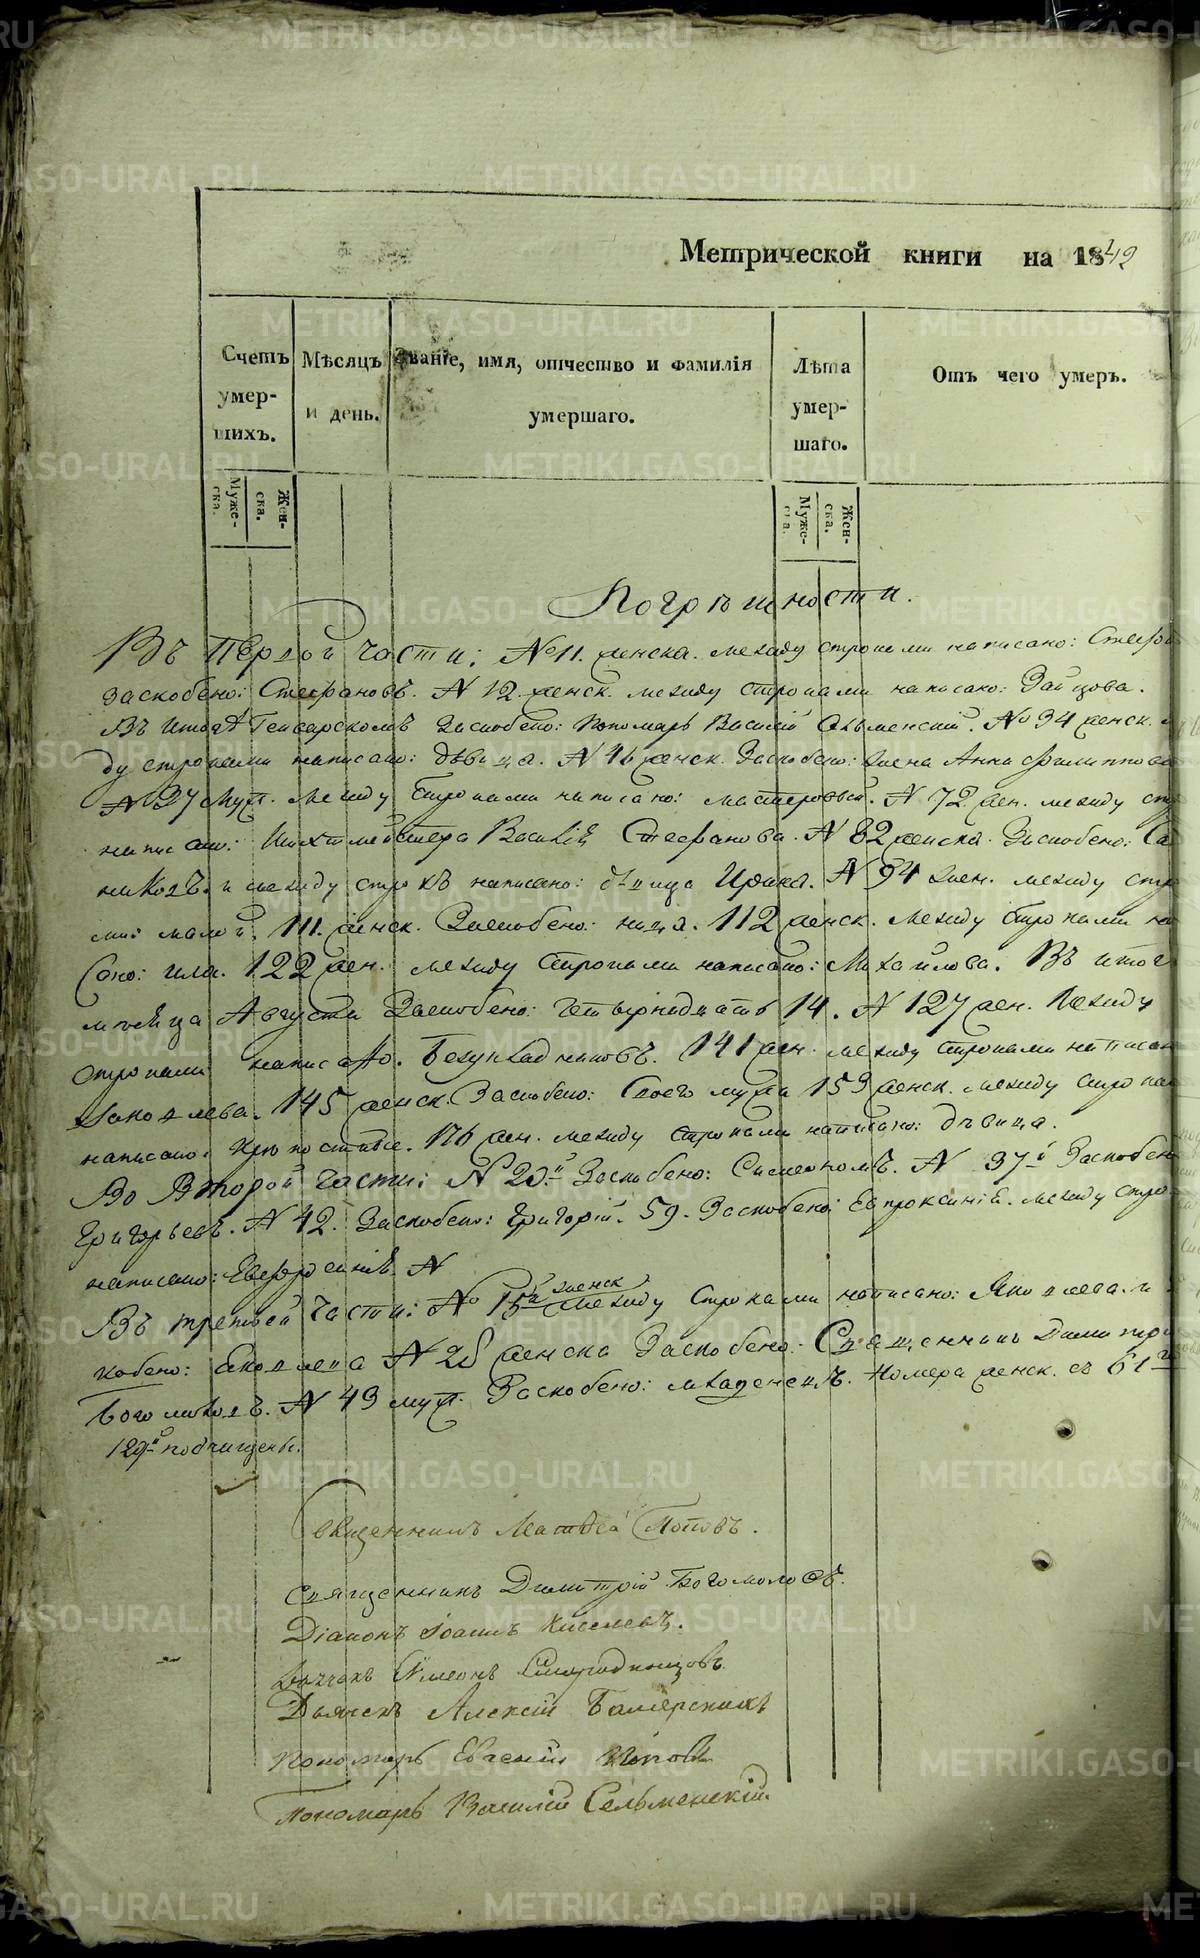 Метрической книги на 1842
Счетъ умер-шихъ.
Муже-ска.
Жен-ска.
Мѣсяцъ и день.
Званіе, имя, отчество и фамилія умершаго.
Лѣта умер-шаго.
Муже-ска.
Жен-ска.
Отъ чего умеръ.
Погрѣшности.
Въ Первой части: №11. женска. между строками написано:
Заскоблено: Стефановъ. N 12. женск. между строками написано: Зайцова.
Въ итогѣ Генварскомъ Заскоблено: Пономарь Василій Сельменскій. № 34 женск.
ду строками написано: дѣвица. N 46 женск. Заскоблено: Анна Филиппова
N 37 муж. Между Строками написано: мастеровый. N 72 жен. между
написано: Шихтмейстера Василія Стефанова. N 82 женска. Заскоблено:
и между строкъ написано: дѣвица Ирина. N 94 жен. между
111. женск. Заскоблено: ница. 112 женск. Между Строками на
сано: ила. 122 жен. между Строками написано: Михайлова. Въ итогѣ
мѣсяца Августа Заскоблено: четырнадцать 14. N 127 жен. Между
строками написано. Безукладниковъ. 141 жен. между строками написано
Яковлева. 145 женск. Заскоблено: Своего мужа 153 женск. между строка
написано. 176 жен. между строками написано: дѣвица.
Во Второй части: N 20.й Заскоблено: Симеономъ. N 37й Заскоблено
Григорьевъ. N 42. Заскоблено: Григорій. 59. Заскоблено: Евпроксинія. между стро
написано: Евфросинія. N
Въ третьей части: № 15й женск между Строками написано: Яковлева. и
кобено: Яковлева N 28 женска Заскоблено: Священникъ Димитрі
Богомоловъ. N 43 муж. Заскоблено: младенецъ. Номера женск. съ 61го
129й подчищены.
Священникъ Матфей Поповъ.
Священникъ Димитрій Богомоловъ.
Діаконъ Іоаннъ Киселевъ.
Дьячекъ Симеонъ Смородинцовъ.
Дьячекъ Алексій
Пономарь Евгеній Поповъ
Пономарь Василій Сельменскій.
METRIKI.GASO-URAL.RU